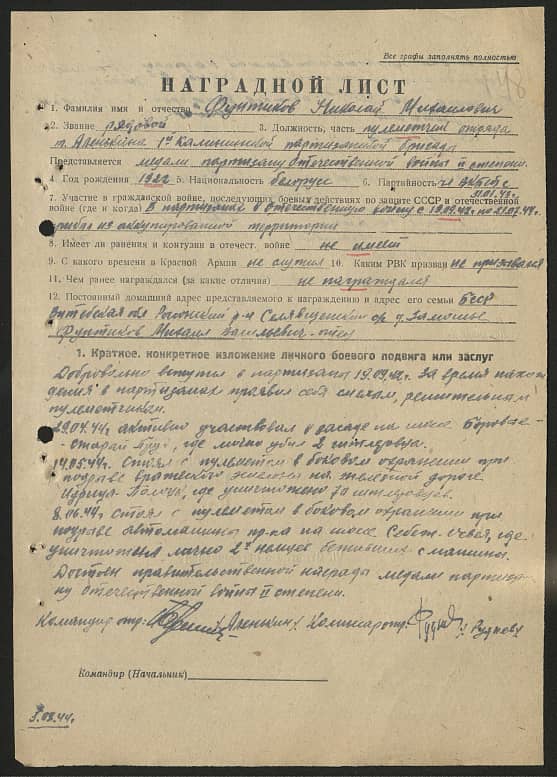 Все графы заполнять полностью
НАГРАДНОЙ ЛИСТ
1. Фамилия имя и отчество Фунтиков Николай Михайлович
2. Звание рядовой 3. Должность, часть пулеметчик отряда
т. Аленкина 1й Калининской партизанской бригады
Представляется медали партизану отечественной войны II степени.
4. Год рождения 1922 5. Национальность белорус 6. Партийность чл ВКП(б) с
7. Участие в гражданской войне, последующих боевых действиях по защите СССР и отечественной
войне (где и когда) В партизанах в отечественную войну с 19.09.42г по 21.07.44г
на оккупированной территории
8. Имеет ли ранения и контузии в отечест. войне не имеет
9. С какого времени в Красной Армии не служил 10. Каким РВК призван не призывался
11. Чем ранее награжден (за какие отличия) не награждался
12. Постоянный домашний адрес представляемого к награждению и адрес его семьи БССР
Витебская обл р-н с/с д. Замошье
Фунтиков Михаил Васильевич-отец
1. Краткое, конкретное изложение личного боевого подвига или заслуг
Добровольно вступил в партизаны 19.09.42г. За время нахож-
дения в партизанах проявил себя смелым, решительным
пулеметчиком.
29.04.44г активно участвовал в засаде на шоссе
Старый где лично убил 2 гитлеровца.
14.05.44г. Стоял с пулеметом в боковом охранении при
подрыве вражеского эшелона на железной дороге
Идрица-Полоцк, где уничтожено 70 гитлеровцев.
8.06.44г Стоял с пулеметом в боковом охранении при
подрыве автомашины пр-ка на шоссе Себеж где
уничтожил лично 2х немцев бежавших с машины.
Достоин правительственной награды медали партиза-
ну отечественной войны II степени.
Командир отр. /Аленкин/ Комиссар отр. /Руднев/
Командир (Начальник)